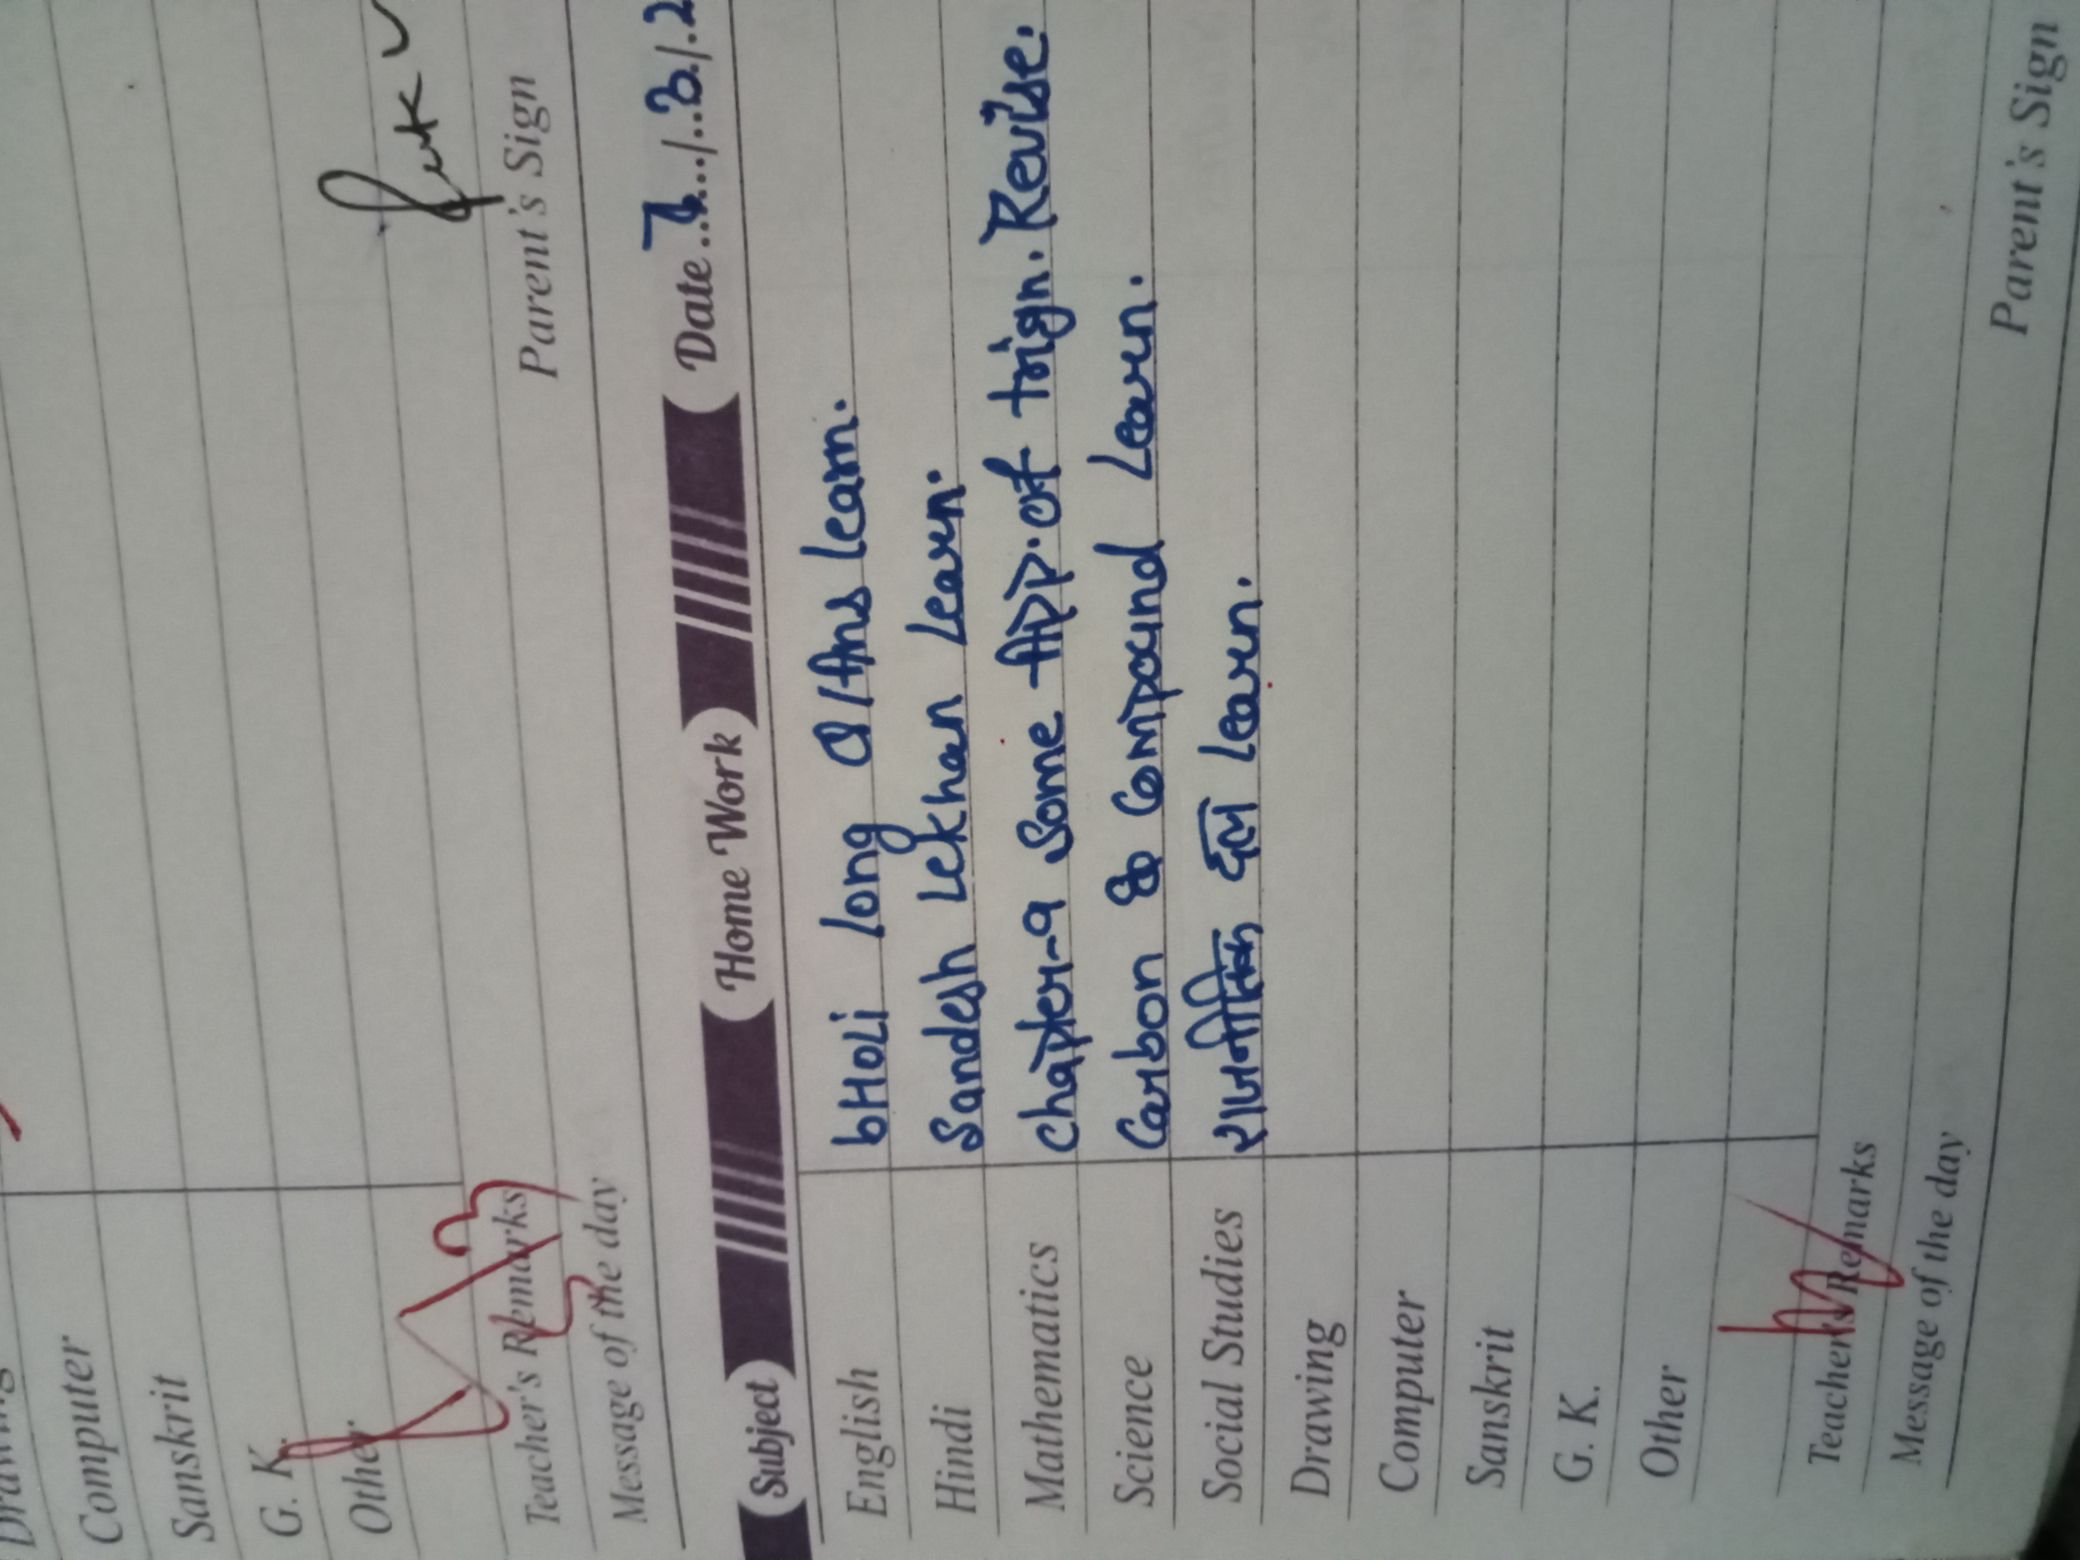 Computer
Sanskrit
G. K.
Other
Teacher's Remarks
Parent's Sign
Message of the day
Subject Home Work Date 7/3/2
English bHoli long Q/Ans learn.
Hindi Sandesh lekhan learn.
Mathematics chapter-9 Some App. of trign. Revise.
Science Carbon & Compound learn.
Social Studies राजनीतिक दल learn.
Drawing
Computer
Sanskrit
G. K.
Other
Teacher's Remarks
Parent's Sign
Message of the day